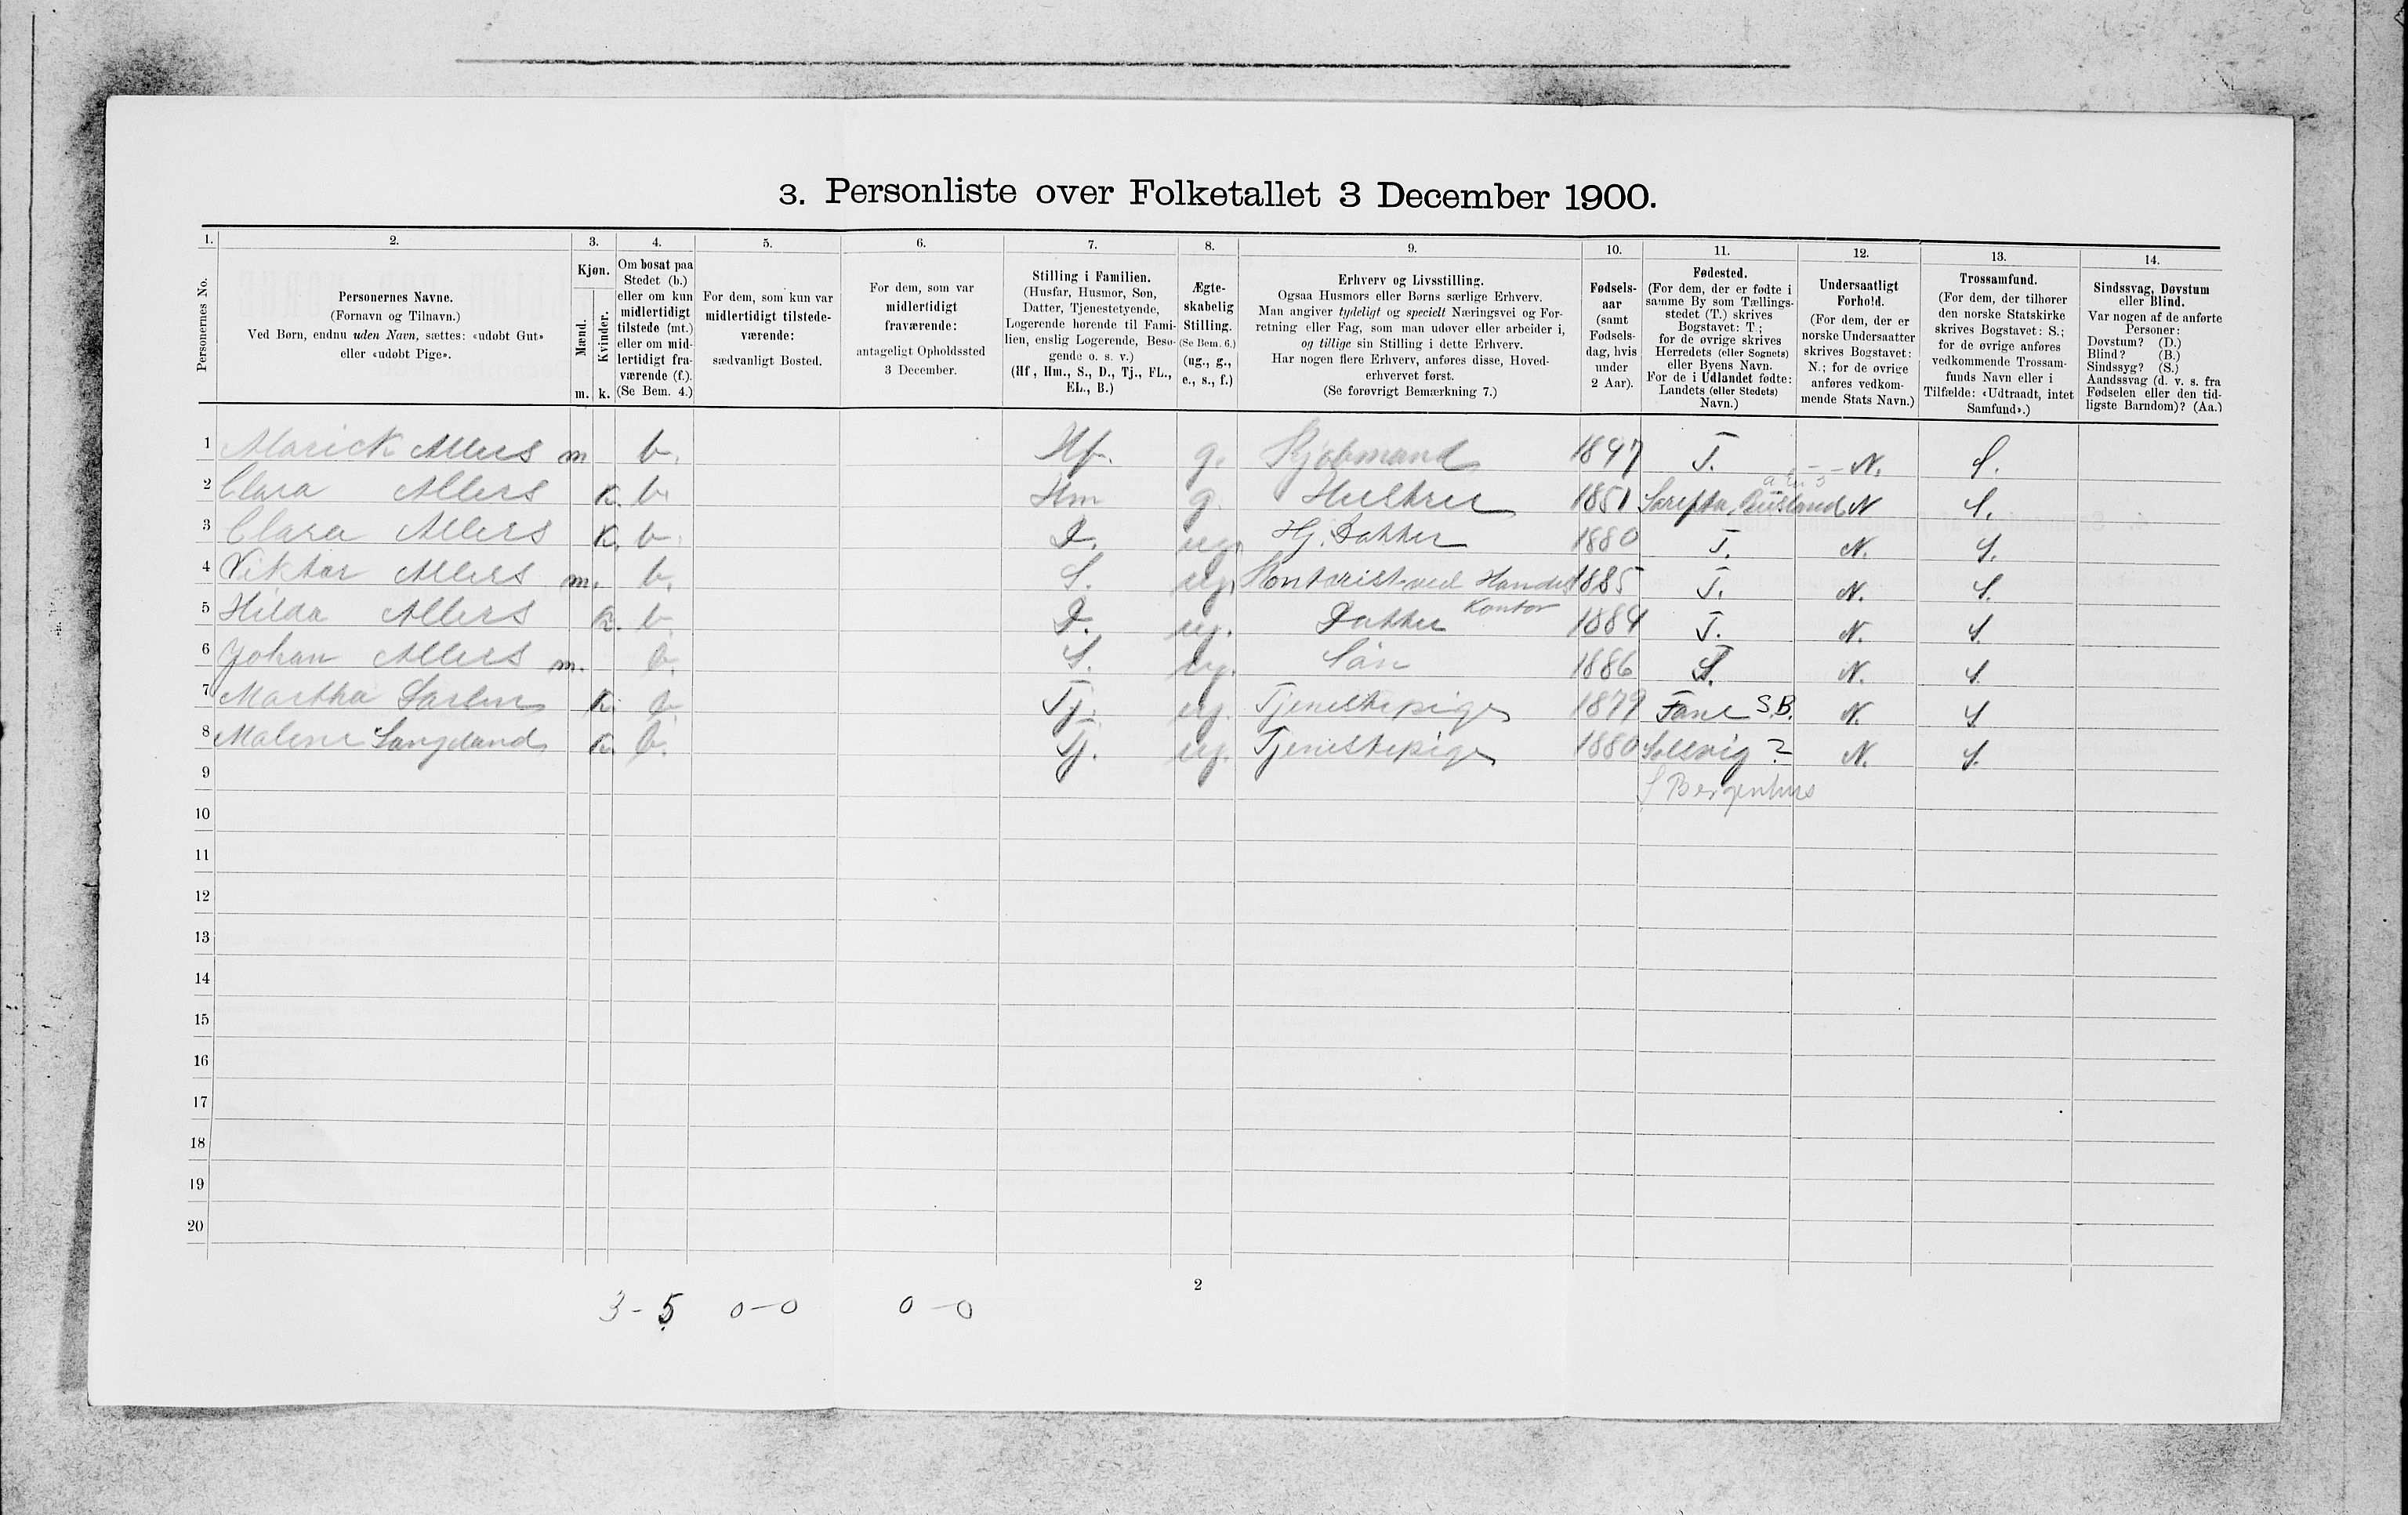 3. Personliste over Folketallet 3 December 1900.
1. 2. 3. 4. 5. 6. 7. 8. 9. 10. 11. 12. 13. 14.
Personernes No.
Personernes Navne.
(Fornavn og Tilnavn.)
Ved Børn, endnu uden Navn, sættes: «udøbt Gut»
eller «udøbt Pige».
Kjøn.
Mænd.
Kvinder.
m. k.
Om bosat paa
Stedet (b.)
eller om kun
midlertidigt
tilstede (mt.)
eller om mid-
lertidigt fra-
værende (f.).
(Se Bem. 4.)
For dem, som kun var
midlertidigt tilstede-
værende:
sædvanligt Bosted.
For dem, som var
midlertidigt
fraværende:
antageligt Opholdssted
3 December.
Stilling i Familien.
(Husfar, Husmor, Søn,
Datter, Tjenestetyende,
Logerende hørende til Fami-
lien, enslig Logerende, Besø-
gende o. s. v.)
(Hf, Hm., S., D., Tj., FL.,
EL., B.)
Ægte-
skabelig
Stilling.
(Se Bem. 6.)
(ug., g.,
e., s., f.)
Erhverv og Livsstilling.
Ogsaa Husmors eller Børns særlige Erhverv.
Man angiver tydeligt og specielt Næringsvei og For-
retning eller Fag, som man udøver eller arbeider i,
og tillige sin Stilling i dette Erhverv.
Har nogen flere Erhverv, anføres disse, Hoved-
erhvervet først.
(Se forøvrigt Bemærkning 7.)
Fødsels-
aar
(samt
Fødsels-
dag, hvis
under
2 Aar).
Fødested.
(For dem, der er fødte i
samme By som Tællings-
stedet (T.) skrives
Bogstavet: T.;
for de øvrige skrives
Herredets (eller Sognets)
eller Byens Navn.
For de i Udlandet fødte:
Landets (eller Stedets)
Navn.)
Undersaatligt
Forhold.
(For dem, der er
norske Undersaatter
skrives Bogstavet:
N.; for de øvrige
anføres vedkom-
mende Stats Navn.)
Trossamfund.
(For dem, der tilhører
den norske Statskirke
skrives Bogstavet: S.;
for de øvrige anføres
vedkommende Trossam-
funds Navn eller i
Tilfælde: «Udtraadt, intet
Samfund».)
Sindssvag, Døvstum
eller Blind.
Var nogen af de anførte
Personer:
Døvstum? (D.)
Blind? (B.)
Sindssyg? (S.)
Aandssvag (d. v. s. fra
Fødselen eller den tid-
ligste Barndom)? (Aa.)
1 Allers m b. Hf. g. Kjøbmand 1847 T. N. S.
2 Clara Allers k. b. Hm g. Hustru 1851 Sarepta, Rusland N S.
3 Clara Allers k. b. D. ug. Hj. Datter 1880 T. N. S.
4 Viktor Allers m. b. S. ug. Kontorist ved Handels 1885 T. N. S.
Kontor
5 Hilda Allers k. b. D. ug. Datter 1884 T. N. S.
6 Johan Allers m. b. S. ug. Søn 1886 N. S.
7 Martha k. b. Tj. ug. Tjenestepige 1879 Fane S.B. N. S.
8 Malene k. b. Tj. ug. Tjenestepige 1880 ? N. S.
9 S Bergenhus
10
11
12
13
14
15
16
17
18
19
20
2
3 - 5 0 - 0 0 - 0